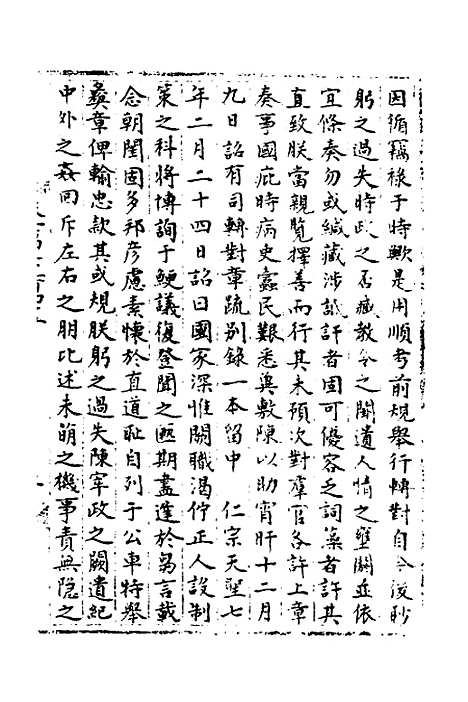 因循竊祿于時歟是用順考前規舉行轉對自今後朕
躬之過失時政之否臧教令之闕遺人情之壅閼並依
宜條奏勿或緘藏涉詆訐者固可優容乏詞藻者許其
直致朕當親覽擇善而行其未預次對羣官各許上章
奏事國疵時病吏蠹民艱悉與敷陳以助宵旰十二月
九日詔有司轉對章疏别錄一本留中 仁宗天聖七
年二月二十四日詔曰國家深惟闕職渴佇正人設制
策之科將博詢于鯁議復登聞之匭期盡達於芻言載
念朝閨固多邦彥慮素懷於直道恥自列于公車特舉
彝章俾輸忠款其或規朕躬之過失陳宰政之闕遺紀
中外之姦回斥左右之朋比述未萌之機事責無隐之